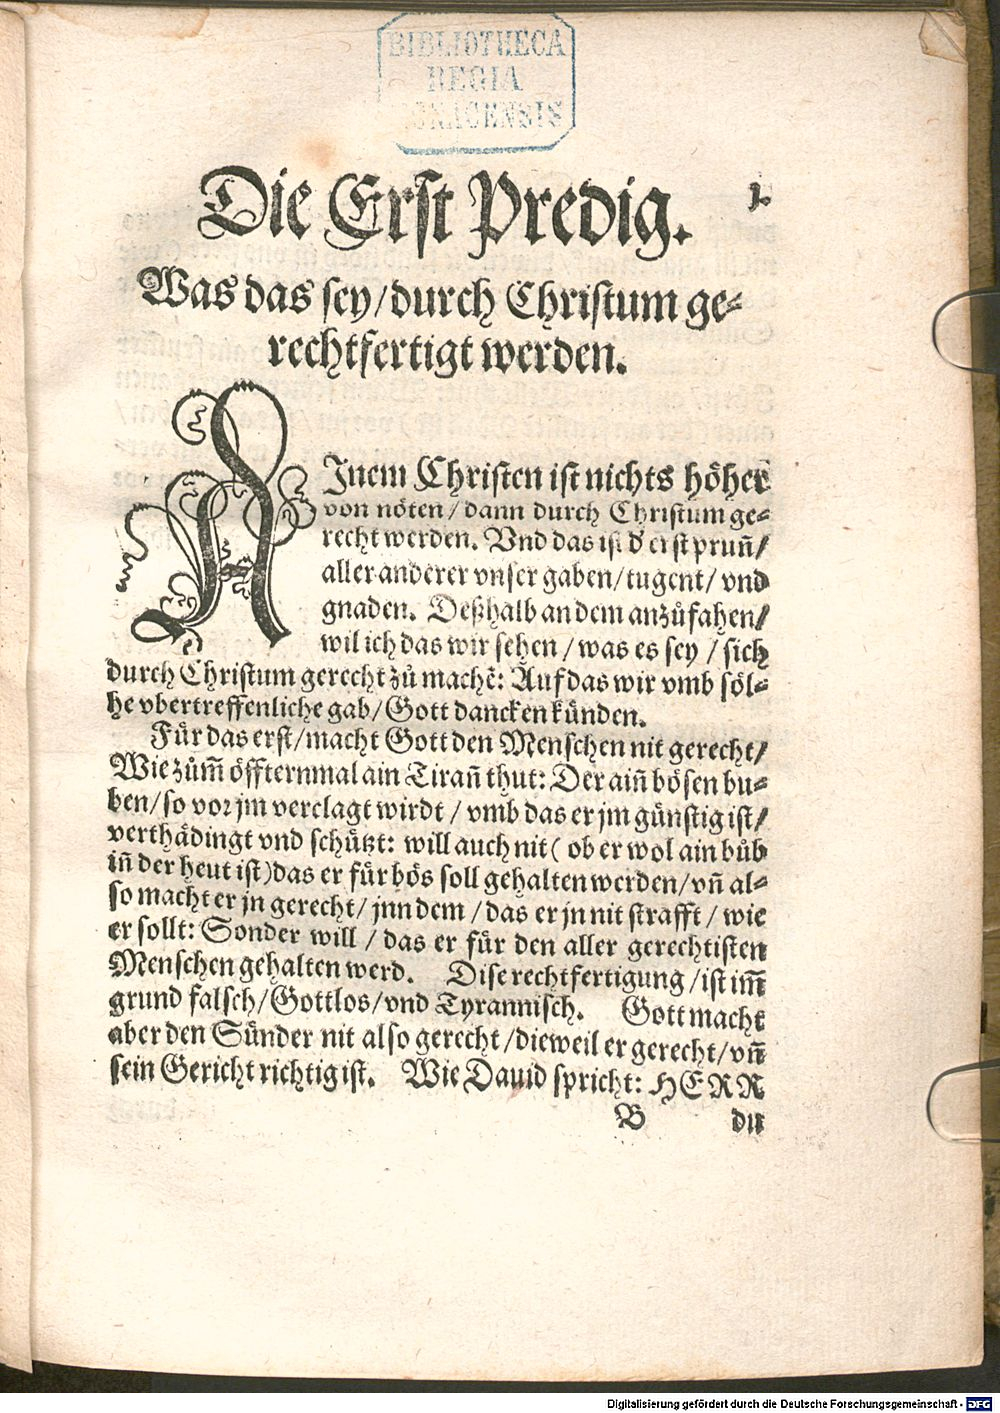 BIBLIOTHECA
REGIA
MONACENSIS
1.
Die Erst Predig.
Was das sey/durch Christum ge⸗
rechtfertigt werden.
AInem Christen ist nichts höher
von nöten/ dann durch Christum ge⸗
recht werden. Vnd das ist d' erst prun̄/
aller anderer vnser gaben/tugent/ vnd
gnaden. Deßhalb an dem anzůfahen/
wil ich das wir sehen / was es sey / sich
durch Christum gerecht zů machē: Auf das wir vmb söl⸗
he vbertreffenliche gab/Gott dancken künden.
Für das erst/macht Gott den Menschen nit gerecht/
Wie zům̄ öffternmal ain Tiran̄ thut: Der ain̄ bösen bu⸗
ben/so vor jm verclagt wirdt / vmb das er jm günstig ist/
verthädingt vnd schützt: will auch nit( ob er wol ain bůb
in̄ der heut ist)das er für bös soll gehalten werden/vn̄ al⸗
so macht er jn gerecht/ jnn dem / das er jn nit strafft / wie
er sollt: Sonder will / das er für den aller gerechtisten
Menschen gehalten werd. Dise rechtfertigung /ist im̄
grund falsch/Gottlos/vnd Tyrannisch. Gott macht
aber den Sünder nit also gerecht /dieweil er gerecht/vn̄
sein Gericht richtig ist. Wie Dauid spricht: HERR
B du
Digitalisierung gefördert durch die Deutsche Forschungsgemeinschaft - DFG